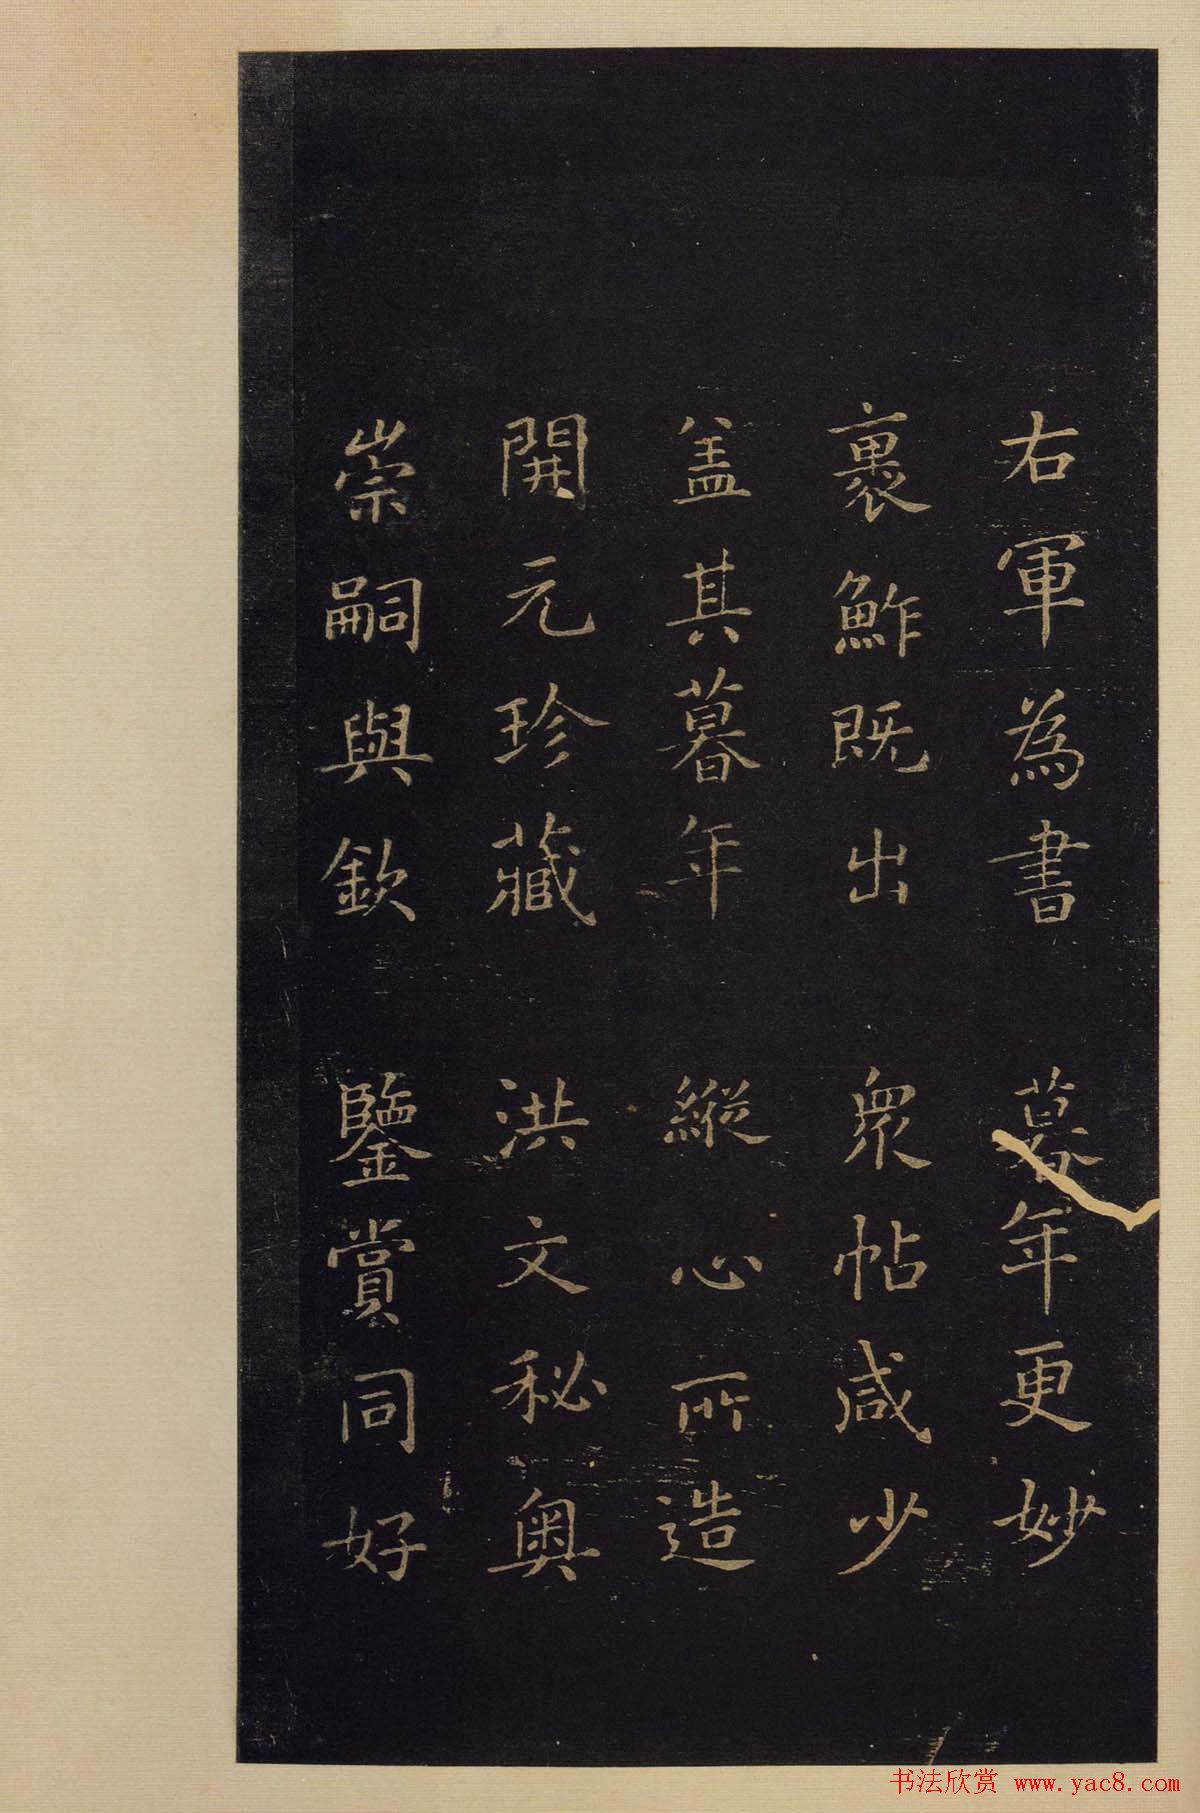 右軍為書暮年更妙
裹鮓既出衆帖咸少
盖其暮年縱心所造
開元珍藏洪文秘奥
崇嗣與欽鑒賞同好
书法欣赏 www.yac8.com